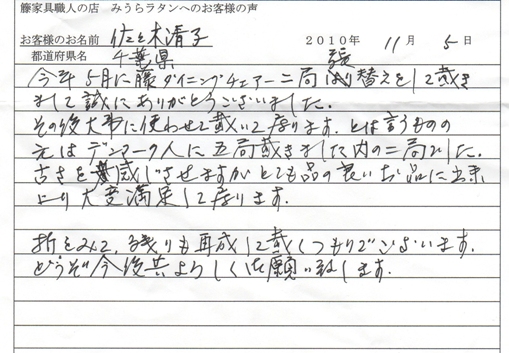 籐家具職人の店 みうらラタンへのお客様の声
お客様のお名前 佐々木清子 2010年 11月 5日
都道府県名 千葉県
今年5月に藤ダイニングチェアー二局張り替えをして戴き
まして誠にありがとうございました。
その後大事に使わせて戴いて居ります。とは言うものの
元はデンマーク人に五局戴きました内の二局でした。
古さを感じさせますがとても品の良いお品に出来
上り大変満足して居ります。
折をみて、残りも再成して戴くつもりでございます。
どうぞ今後共よろしく御願い致します。